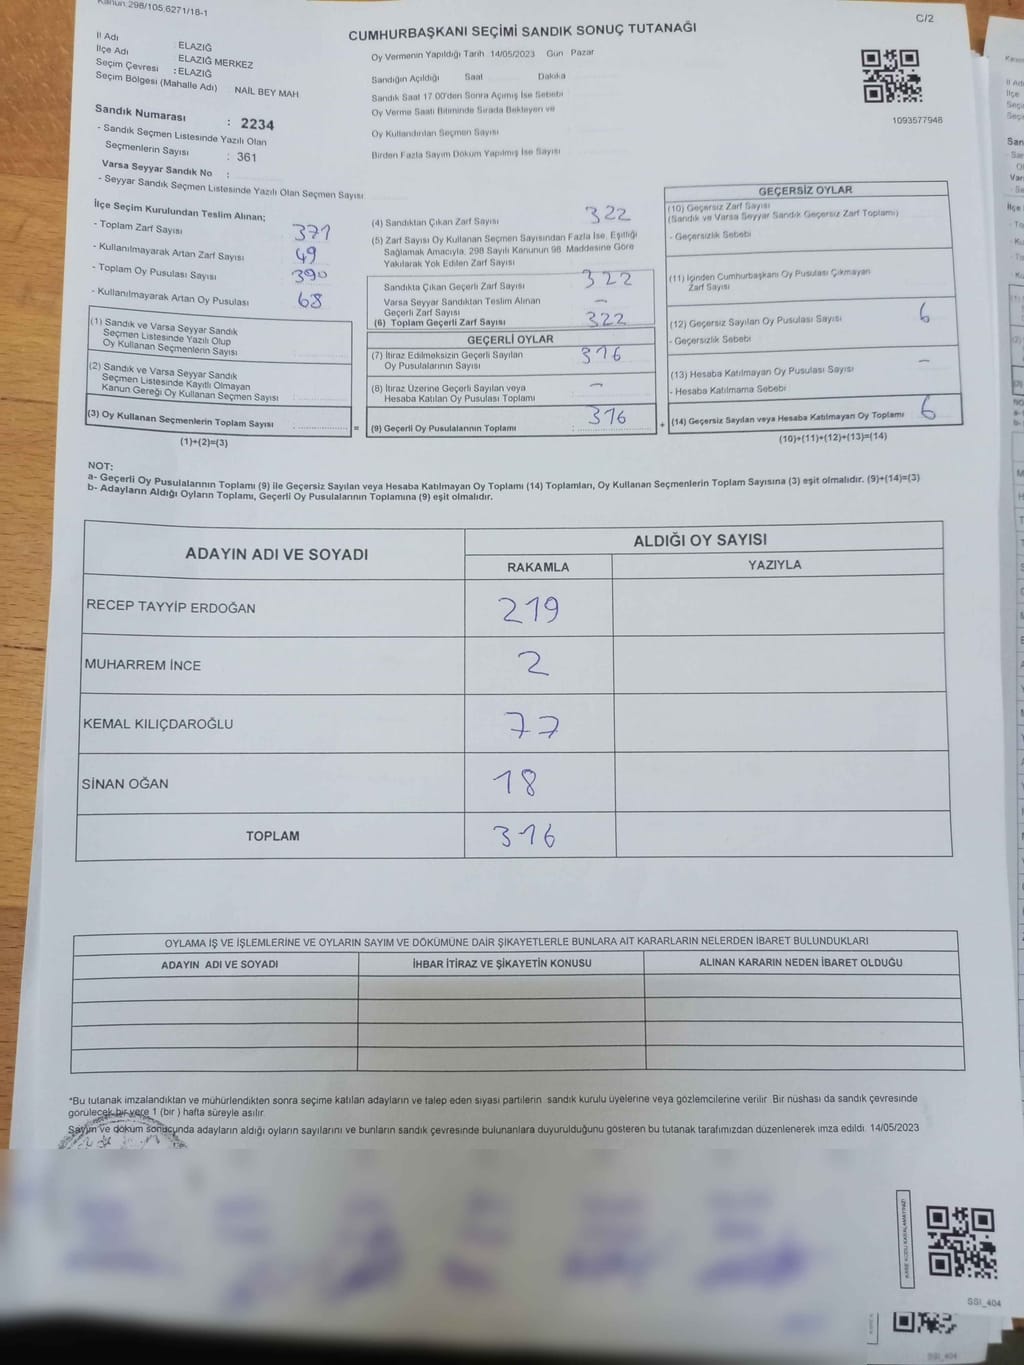 Kanun:298/105,6271/18-1
C/2
CUMHURBAŞKANI SEÇİMİ SANDIK SONUÇ TUTANAĞI
İl Adı : ELAZIĞ
İlçe Adı ELAZIĞ MERKEZ
Seçim Çevresi : ELAZIĞ
Seçim Bölgesi (Mahalle Adı) NAİL BEY MAH.
Sandık Numarası : 2234
- Sandık Seçmen Listesinde Yazılı Olan
Seçmenlerin Sayısı : 361
Varsa Seyyar Sandık No :
- Seyyar Sandık Seçmen Listesinde Yazılı Olan Seçmen Sayısı
Oy Vermenin Yapıldığı Tarih 14/05/2023 Gün Pazar
Sandığın Açıldığı Saat Dakika
Sandık Saat 17.00'den Sonra Açımış İse Sebebi
Oy Verme Saati Bitiminde Sırada Bekleyen ve
Oy Kullandırılan Seçmen Sayısı
Birden Fazla Sayım Döküm Yapılmış İse Sayısı
1093577948
İlçe Seçim Kurulundan Teslim Alınan;
- Toplam Zarf Sayısı 371
- Kullanılmayarak Artan Zarf Sayısı 49
- Toplam Oy Pusulası Sayısı 390
- Kullanılmayarak Artan Oy Pusulası 68
(1) Sandık ve Varsa Seyyar Sandık
Seçmen Listesinde Yazılı Olup
Oy Kullanan Seçmenlerin Sayısı
(2) Sandık ve Varsa Seyyar Sandık
Seçmen Listesinde Kayıtlı Olmayan
Kanun Gereği Oy Kullanan Seçmen Sayısı :
(3) Oy Kullanan Seçmenlerin Toplam Sayısı : =
(1)+(2)=(3)
(4) Sandıktan Çıkan Zarf Sayısı 322
(5) Zarf Sayısı Oy Kullanan Seçmen Sayısından Fazla İse, Eşitliği
Sağlamak Amacıyla, 298 Sayılı Kanunun 98. Maddesine Göre
Yakılarak Yok Edilen Zarf Sayısı
Sandıkta Çıkan Geçerli Zarf Sayısı 322
Varsa Seyyar Sandıktan Teslim Alınan
Geçerli Zarf Sayısı –
(6) Toplam Geçerli Zarf Sayısı 322
GEÇERLİ OYLAR
(7) İtiraz Edilmeksizin Geçerli Sayılan
Oy Pusulalarının Sayısı 316
(8) İtiraz Üzerine Geçerli Sayılan veya
Hesaba Katılan Oy Pusulası Toplamı –
(9) Geçerli Oy Pusulalarının Toplamı : 316 +
GEÇERSİZ OYLAR
(10) Geçersiz Zarf Sayısı
(Sandık ve Varsa Seyyar Sandık Geçersiz Zarf Toplamı)
- Geçersizlik Sebebi
(11) İçinden Cumhurbaşkanı Oy Pusulası Çıkmayan
Zarf Sayısı
(12) Geçersiz Sayılan Oy Pusulası Sayısı 6
- Geçersizlik Sebebi
(13) Hesaba Katılmayan Oy Pusulası Sayısı –
- Hesaba Katılmama Sebebi
(14) Geçersiz Sayılan veya Hesaba Katılmayan Oy Toplamı 6
(10)+(11)+(12)+(13)=(14)
NOT:
a- Geçerli Oy Pusulalarının Toplamı (9) ile Geçersiz Sayılan veya Hesaba Katılmayan Oy Toplamı (14) Toplamları, Oy Kullanan Seçmenlerin Toplam Sayısına (3) eşit olmalıdır. (9)+(14)=(3)
b- Adayların Aldığı Oyların Toplamı, Geçerli Oy Pusulalarının Toplamına (9) eşit olmalıdır.
ADAYIN ADI VE SOYADI ALDIĞI OY SAYISI
RAKAMLA YAZIYLA
RECEP TAYYİP ERDOĞAN 219
MUHARREM İNCE 2
KEMAL KILIÇDAROĞLU 77
SİNAN OĞAN 18
TOPLAM 316
OYLAMA İŞ VE İŞLEMLERİNE VE OYLARIN SAYIM VE DÖKÜMÜNE DAİR ŞİKAYETLERLE BUNLARA AİT KARARLARIN NELERDEN İBARET BULUNDUKLARI
ADAYIN ADI VE SOYADI İHBAR İTİRAZ VE ŞİKAYETİN KONUSU ALINAN KARARIN NEDEN İBARET OLDUĞU
*Bu tutanak imzalandıktan ve mühürlendikten sonra seçime katılan adayların ve talep eden siyasi partilerin sandık kurulu üyelerine veya gözlemcilerine verilir. Bir nüshası da sandık çevresinde
görülecek bir yere 1 (bir) hafta süreyle asılır.
Sayım ve döküm sonucunda adayların aldığı oyların sayılarını ve bunların sandık çevresinde bulunanlara duyurulduğunu gösteren bu tutanak tarafımızdan düzenlenerek imza edildi. 14/05/2023
KARE KODU KARALAMAYINIZ!
SSI_404
SSI_404